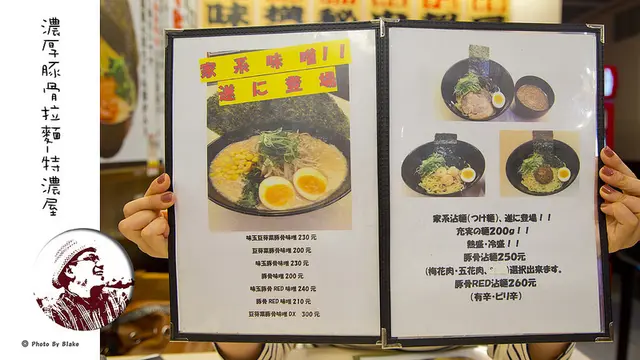 濃厚豚骨拉麵-特濃屋
© Photo By Blake
家系味噌!!
遂に登場
味玉豆芽葉豚骨味噌 230 元
豆芽葉豚骨味噌 200 元
味玉豚骨味噌 230 元
豚骨味噌 200 元
味玉豚骨 RED 味噌 240 元
豚骨 RED 味噌 210 元
豆芽葉豚骨味噌 DX 300 元
家系沾麵(つけ麵)、遂に登場!!
充実の麵200g!!
熱盛・冷盛!!
豚骨沾麵250元
(梅花肉・五花肉、 )選択出来ます。
豚骨RED沾麵260元
(有辛・ピリ辛)